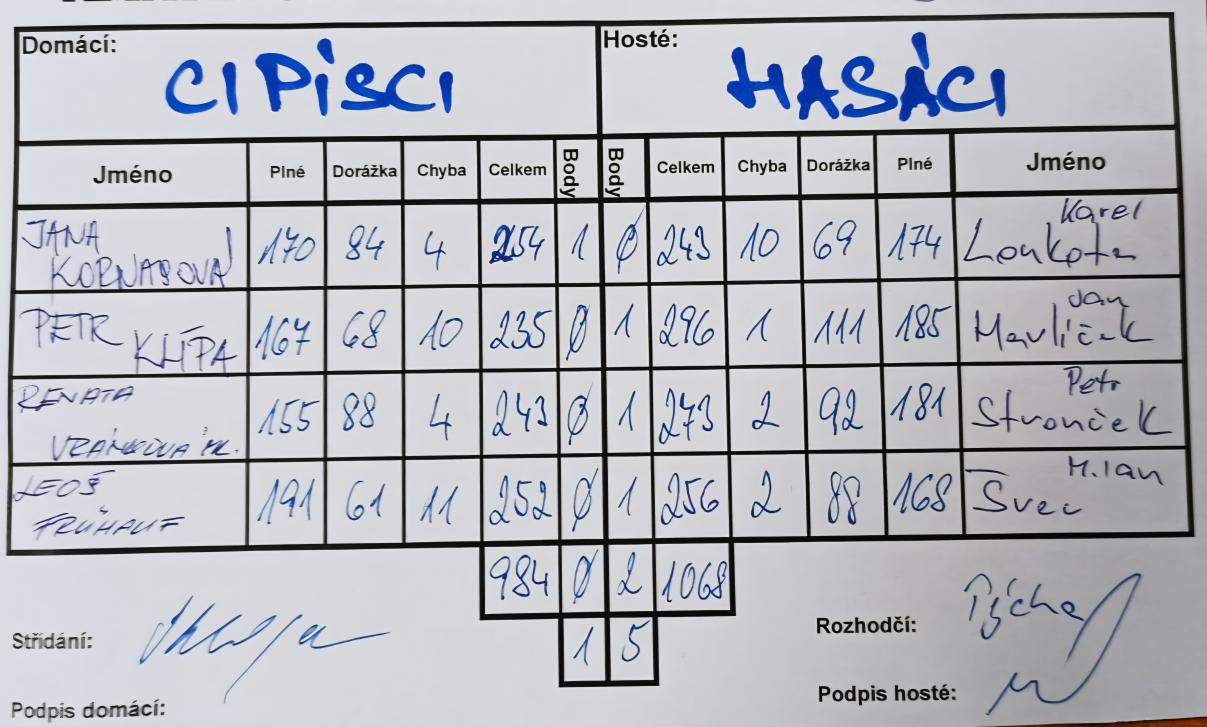 Domácí: Hosté:
CIPÍSCI HASÁCI
Jméno Plné Dorážka Chyba Celkem Body Body Celkem Chyba Dorážka Plné Jméno
JANA KORNASOVÁ 170 84 4 254 1 0 243 10 69 174 Karel Loukota
PETR KLÍPA 167 68 10 235 0 1 296 1 111 185 Jan Havlíček
RENATA 155 88 4 243 0 1 273 2 92 181 Petr Strouček
LEOŠ FRÜHAUF 191 61 11 252 0 1 256 2 88 168 Milan Švec
984 0 2 1068
1 5
Střídání: Rozhodčí: Pýcha
Podpis domácí: Podpis hosté: